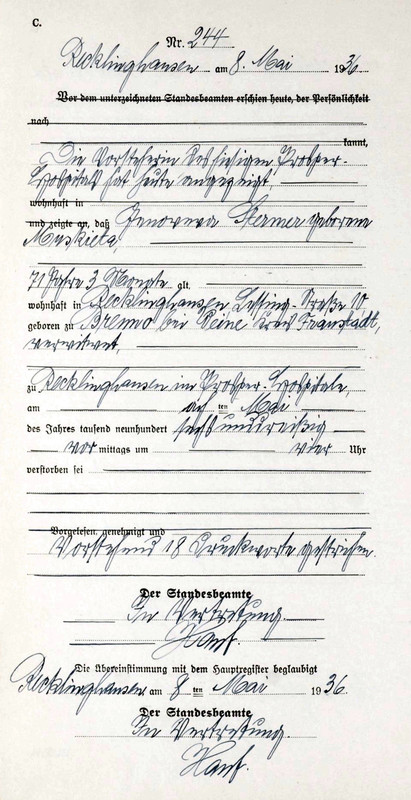 C.
Nr. 244
Recklinghausen am 8. Mai 1936
Vor dem unterzeichneten Standesbeamten erschien heute, der Persönlichkeit
nach
kannt,
Die Vorsteherin des hiesigen Prosper-
Hospitals hat heute angezeigt,
wohnhaft in
und zeigte an, daß Genoveva Stermer geborene
Muskieta,
71 Jahre 3 Monate alt,
wohnhaft in Recklinghausen Lessing-Straße 10
geboren zu Brenno bei Reine Kreis Fraustadt,
verwitwet,
zu Recklinghausen im Prosper-Hospitale,
am acht ten Mai
des Jahres tausend neunhundert sechsunddreißig
vor mittags um vier Uhr
verstorben sei
Vorgelesen, genehmigt und
Vorstehend 18 Druckworte gestrichen.
Der Standesbeamte
In Vertretung.
Die Übereinstimmung mit dem Hauptregister beglaubigt
Recklinghausen am 8 ten Mai 1936.
Der Standesbeamte
In Vertretung.